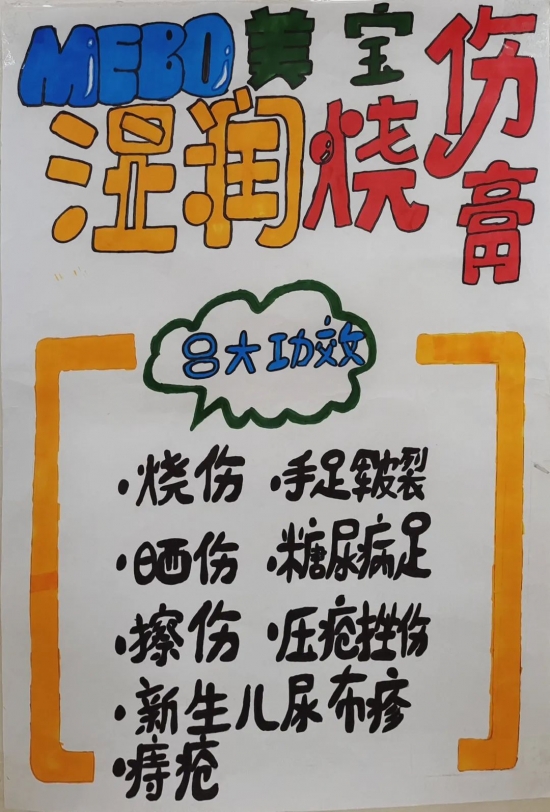 MEBO美宝
湿润烧伤膏
8大功效
·烧伤 ·手足皲裂
·晒伤 ·糖尿病足
·擦伤 ·压疮挫伤
·新生儿尿布疹
·痔疮